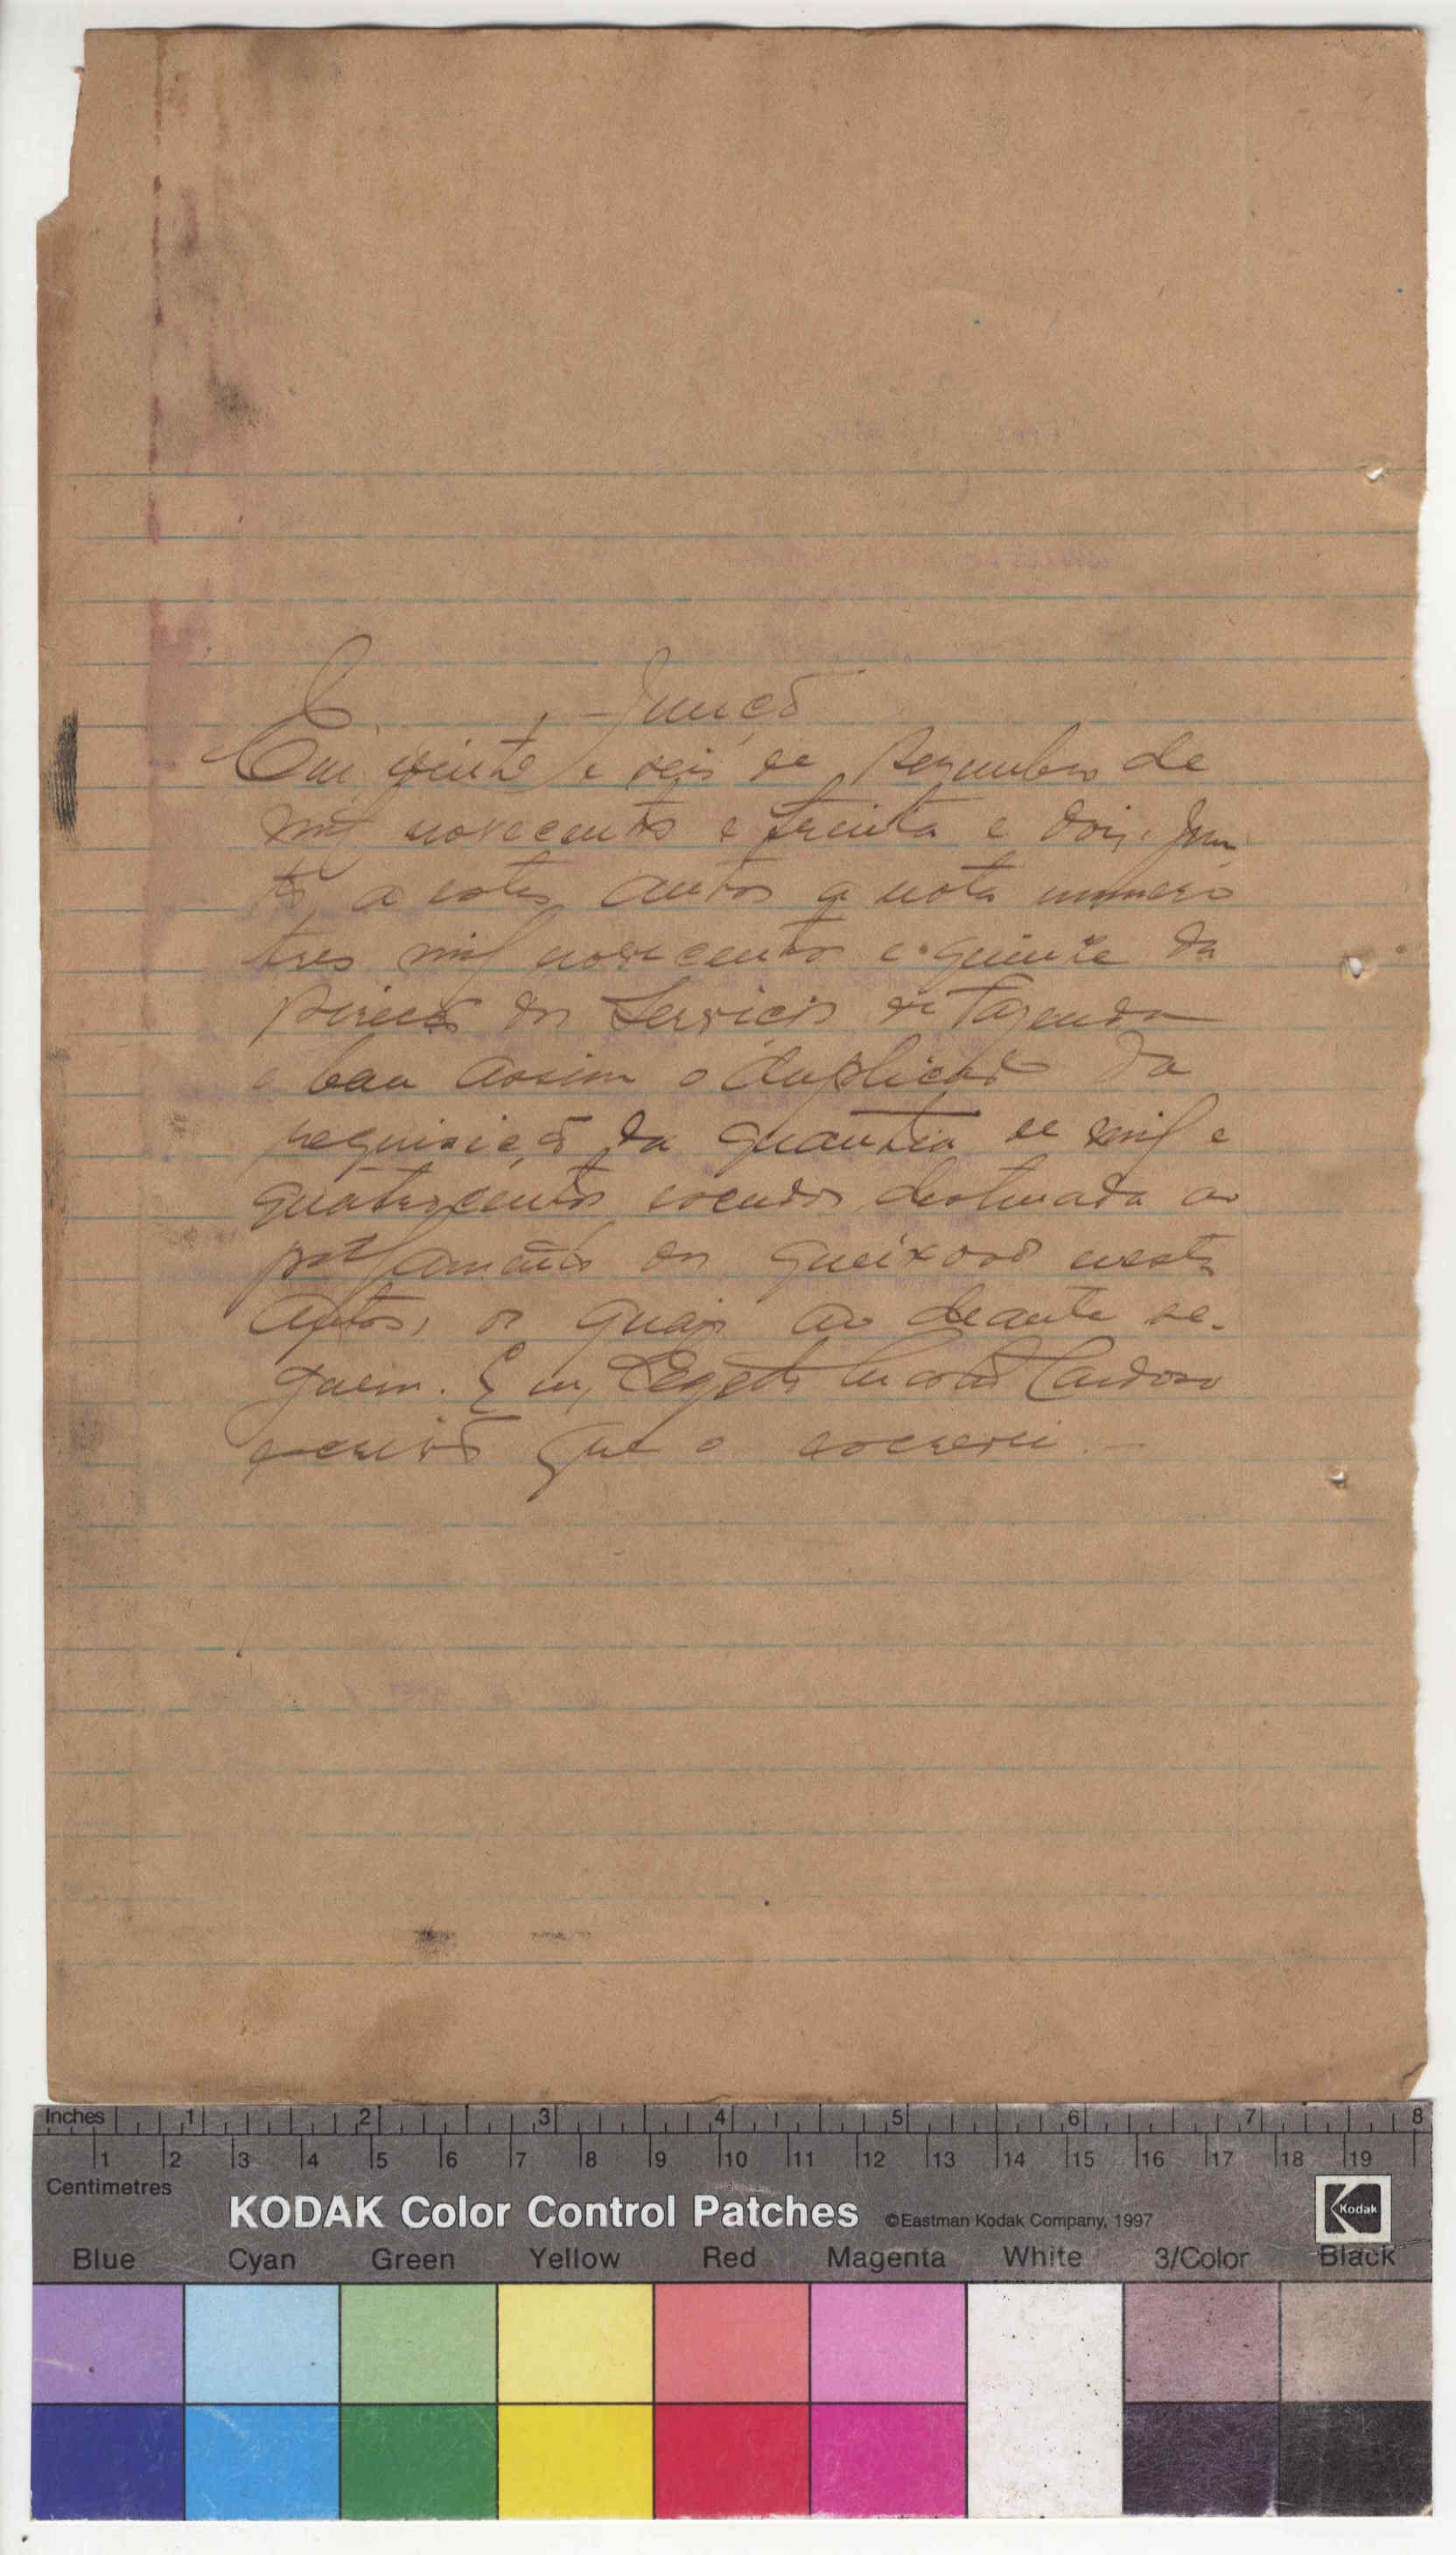 Junção
Em vinte e seis de Dezembro de
mil novecentos e trinta e dois, jun
to a estes autos a nota numero
tres mil novecentos e quinze da
Direcção dos Serviços de Fazenda
e bem assim o duplicado da
requisição da quantia de mil e
quatrocentos escudos destinada ao
pagamento dos queixosos nestes
autos, os quais ao deante se-
guem. E eu, Cardoso
escrivão que o escrevi. —
Inches 1 2 3 4 5 6 7 8
1 2 3 4 5 6 7 8 9 10 11 12 13 14 15 16 17 18 19
Centimetres
KODAK Color Control Patches ©Eastman Kodak Company, 1997 Kodak
Blue Cyan Green Yellow Red Magenta White 3/Color Black